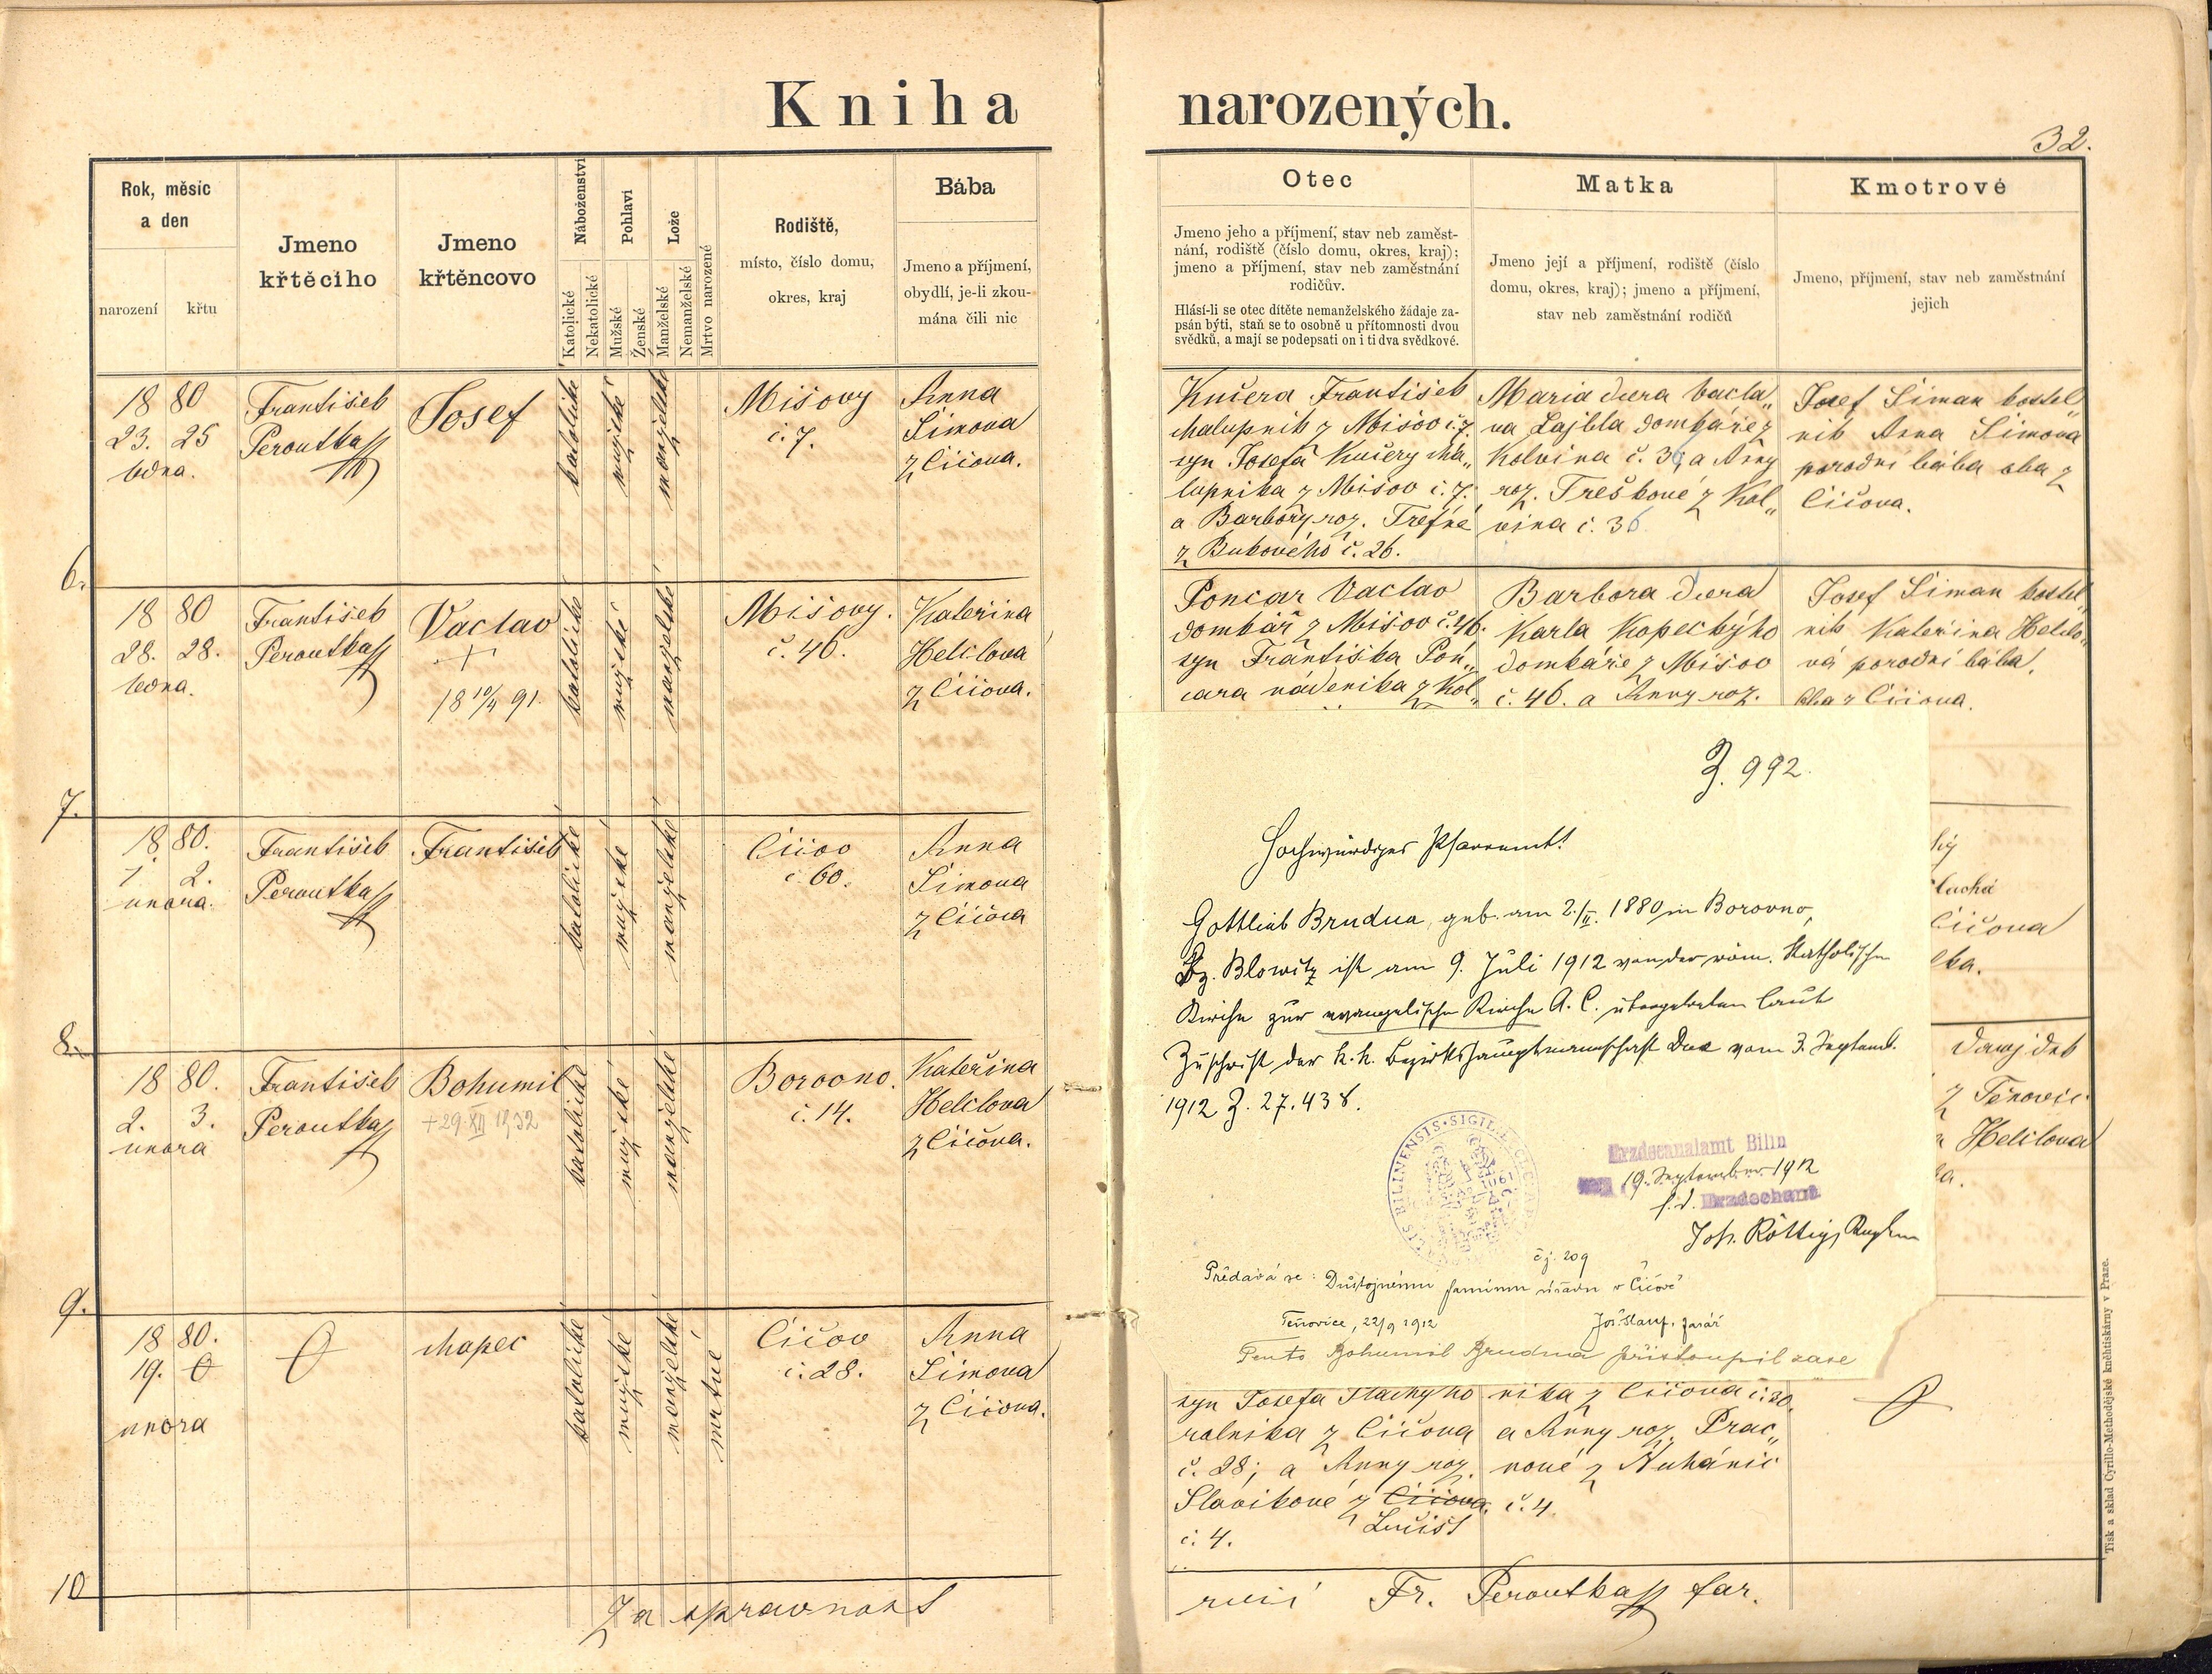 Kniha narozených.
32.
Rok, měsíc
a den
narození
křtu
Jmeno
křtěcího
Jmeno
křtěncovo
Náboženství
Katolické
Nekatolické
Pohlaví
Mužské
Ženské
Lože
Manželské
Nemanželské
Mrtvo narozené
Rodiště,
místo, číslo domu,
okres, kraj
Bába
Jmeno a příjmení,
obydlí, je-li zkou-
mána čili nic
Otec
Jmeno jeho a příjmení, stav neb zaměst-
nání, rodiště (číslo domu, okres, kraj);
jmeno a příjmení, stav neb zaměstnání
rodičův.
Hlásí-li se otec dítěte nemanželského žádaje za-
psán býti, staň se to osobně u přítomnosti dvou
svědků, a mají se podepsati on i ti dva svědkové.
Matka
Jmeno její a příjmení, rodiště (číslo
domu, okres, kraj); jmeno a příjmení,
stav neb zaměstnání rodičů
Kmotrové
Jmeno, příjmení, stav neb zaměstnání
jejich
18 80
23. 25
ledna.
František
Peroutka
Josef
katolické
mužské
manželské
Mišovy
č. 7.
Anna
Šimova
z Číčova.
Kučera František
chalupník z Mišov č. 7.
syn Josefa Kučery cha„
lupníka z Mišov č. 7.
a Barbory roz. Trefné
z Bukového č. 26.
Maria dcera Václa„
va Lajbla domkáře z
Kolvína č. 36 a Anny
roz. Treškové z Kol„
vína č. 36
Josef Šiman kostel„
ník Anna Šimova
porodní bába oba z
Číčova.
6.
18 80
28. 28.
ledna.
František
Peroutka
Václav
+
18 10/4 91.
katolické
mužské
manželské
Mišovy.
č. 46.
Kateřina
Helclova
z Číčova.
Poncar Václav
domkář z Mišov č. 46.
syn Františka Pon„
cara nádeníka z Kol„
Barbora dcera
Karla Kopeckýho
domkáře z Mišov
č. 46. a Anny roz.
Josef Šiman kostel„
ník Kateřina Helclo„
vá porodní bába,
oba z Číčova.
7.
18 80.
1. 2.
února.
František
Peroutka
František
katolické
mužské
manželské
Číčov
č. 60.
Anna
Šimova
z Číčova
Číčova
8.
18 80.
2. 3.
února
František
Peroutka
Bohumil
+ 29. XII 1932
katolické
mužské
manželské
Borovno.
č. 14.
Kateřina
Helclova
z Číčova.
z Těnovic
Helclova
9.
18 80.
19. 0
února
chapec
katolické
mužské
manželské
mrtvé
Číčov
č. 28.
Anna
Šimova
z Číčova.
Z. 992.
Hochwürdiges Pfarramt!
Gottlieb Brudna, geb. am 2./II. 1880 in Borovno,
Bz. Blowitz ist am 9. Juli 1912 von der röm. katholischen
Kirche zur evangelischen Kirche A. C. übergetreten laut
Zuschrift der k. k. Bezirkshauptmannschaft Dux vom 3. Septemb.
1912 Z. 27.438.
Erzdecanalamt Bilin
19. September 1912
f. d. Erzdechant
Joh. Röttig, Kaplan
č. j. 209
Předává se: Důstojnému farnímu úřadu v Číčově
Těnovice, 22/9 1912
farář
Tento Bohumil Brudna přistoupil zase
syn Josefa Stachýho
rolníka z Číčova
č. 28; a Anny roz.
Slavíkové z Číčova.
Lučišť
č. 4.
níka z Číčova č. 30.
a Anny roz. Prac„
nové z Huhánic
č. 4.
10
Za správnost
ručí Fr. Peroutka far.
Tisk a sklad Cyrillo-Methodějské knihtiskárny v Praze.